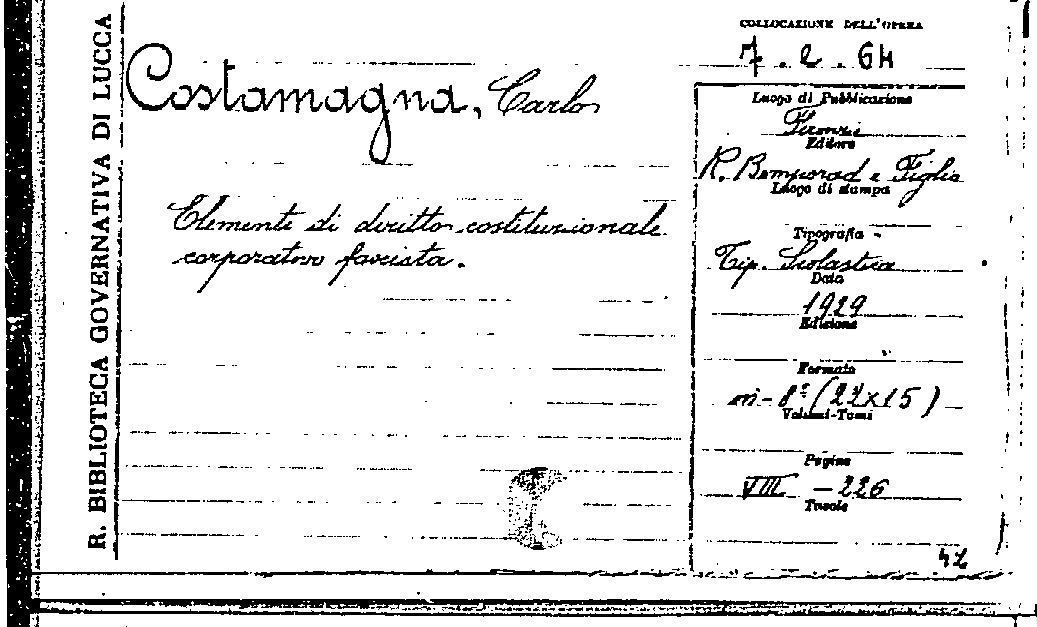 R. BIBLIOTECA GOVERNATIVA DI LUCCA
COLLOCAZIONE DELL'OPERA
7.2.64
Costamagna, Carlo
Elementi di diritto costituzionale
corporativo fascista.
Luogo di Pubblicazione
Firenze
Editore
R. Bemporad e Figlio
Luogo di stampa
Tipografia
Tip. Scolastica
Data
1929
Edizione
Formato
in-8º (22x15)
Volumi-Tomi
Pagine
VIII - 226
Tavole